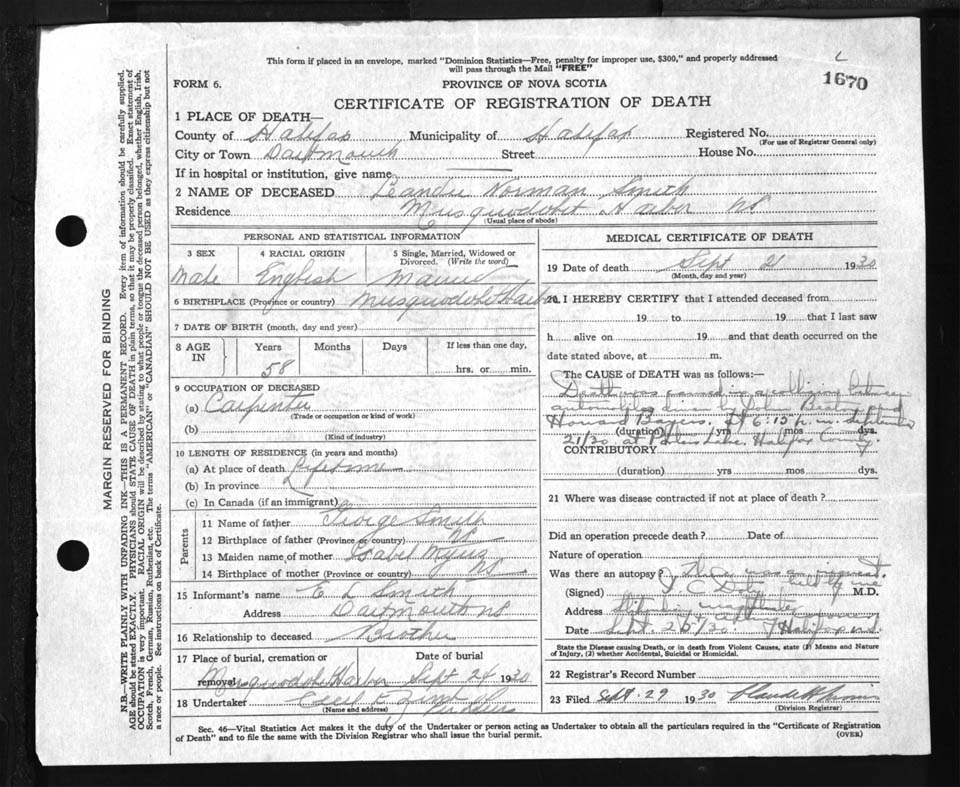 This form if placed in an envelope, marked "Dominion Statistics—Free, penalty for improper use, $300," and properly addressed
will pass through the Mail "FREE"
1670
FORM 6.
PROVINCE OF NOVA SCOTIA
CERTIFICATE OF REGISTRATION OF DEATH
1 PLACE OF DEATH—
County of Halifax Municipality of Halifax Registered No.
(For use of Registrar General only)
City or Town Dartmouth Street House No.
If in hospital or institution, give name
2 NAME OF DECEASED Leander Norman Smith
Residence Musquodoboit Harbor NS
(Usual place of abode)
PERSONAL AND STATISTICAL INFORMATION
3 SEX 4 RACIAL ORIGIN 5 Single, Married, Widowed or
Divorced. (Write the word)
Male English Married
6 BIRTHPLACE (Province or country) Musquodoboit Harbor
7 DATE OF BIRTH (month, day and year)
8 AGE IN Years Months Days If less than one day,
58 hrs. or min.
9 OCCUPATION OF DECEASED
(a) Carpenter
(Trade or occupation or kind of work)
(b)
(Kind of industry)
10 LENGTH OF RESIDENCE (in years and months)
(a) At place of death Lifetime
(b) In province
(c) In Canada (if an immigrant)
Parents
11 Name of father George Smith
12 Birthplace of father (Province or country) NS
13 Maiden name of mother Isabel
14 Birthplace of mother (Province or country) NS
15 Informant's name C L Smith
Address Dartmouth NS
16 Relationship to deceased Brother
17 Place of burial, cremation or removal Date of burial
Musquodoboit Harbor Sept 24 1930
18 Undertaker
(Name and address)
MEDICAL CERTIFICATE OF DEATH
19 Date of death Sept 21 1930
(Month, day and year)
20 I HEREBY CERTIFY that I attended deceased from
19 to 19 that I last saw
h alive on 19 and that death occurred on the
date stated above, at m.
The CAUSE of DEATH was as follows:—
Death was caused in a collision between
automobiles driven by John and
Howard Bayers. At 6:15 p.m. September
(duration) yrs mos dys.
21/30 at Lake, Halifax County.
CONTRIBUTORY
(duration) yrs mos dys.
21 Where was disease contracted if not at place of death?
Did an operation precede death? Date of
Nature of operation
Was there an autopsy? There was an inquest
held by me
(Signed) M.D.
Address Stipendiary magistrate
Date Sept. 26/30. Halifax
State the Disease causing Death, or in death from Violent Causes, state (1) Means and Nature
of Injury, (2) whether Accidental, Suicidal or Homicidal.
22 Registrar's Record Number
23 Filed Sept. 29 1930
(Division Registrar)
Sec. 46—Vital Statistics Act makes it the duty of the Undertaker or person acting as Undertaker to obtain all the particulars required in the "Certificate of Registration
of Death" and to file the same with the Division Registrar who shall issue the burial permit.
(OVER)
MARGIN RESERVED FOR BINDING
N.B.—WRITE PLAINLY WITH UNFADING INK—THIS IS A PERMANENT RECORD. Every item of information should be carefully supplied.
AGE should be stated EXACTLY. PHYSICIANS should STATE CAUSE OF DEATH in plain terms, so that it may be properly classified. Exact statement of
OCCUPATION is very important. RACIAL ORIGIN will be described by stating to what people or tongue the deceased person belonged, whether English, Irish,
Scotch, French, German, Russian, Ruthenian, etc. The terms "AMERICAN" or "CANADIAN" SHOULD NOT BE USED as they express citizenship but not
a race or people. See instructions on back of Certificate.